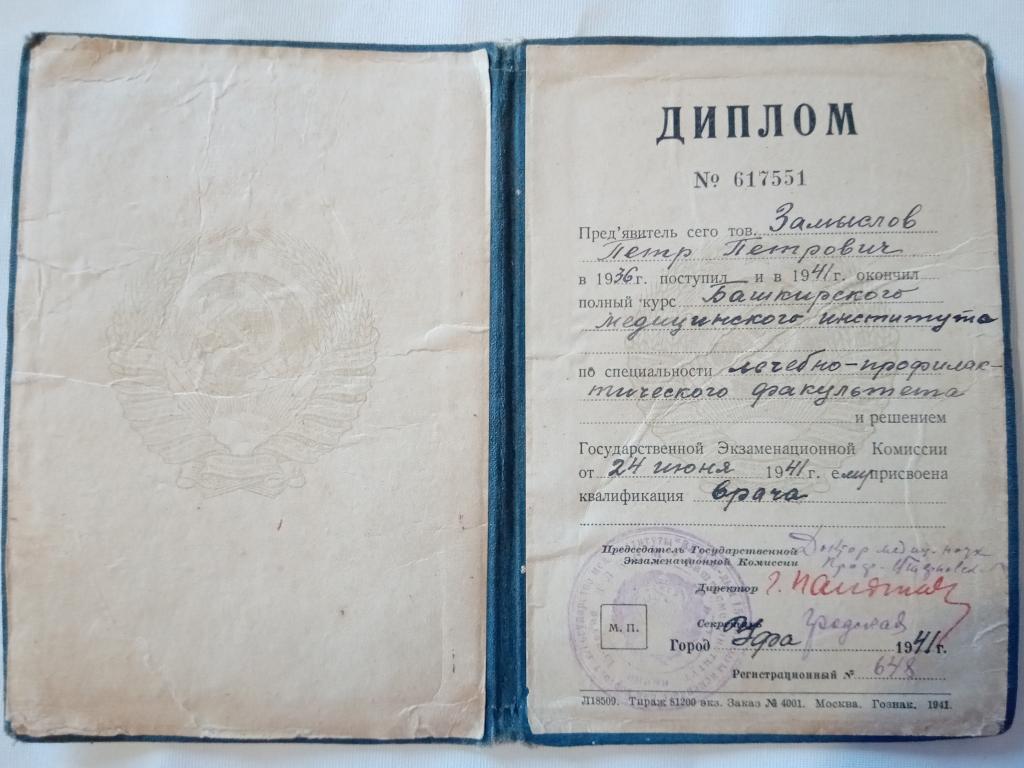 ДИПЛОМ
№ 617551
Пред'явитель сего тов. Замыслов
Петр Петрович
в 1936 г. поступил и в 1941 г. окончил
полный курс Башкирского
медицинского института
по специальности лечебно-профилак-
тического факультета
и решением
Государственной Экзаменационной Комиссии
от 24 июня 1941 г. ему присвоена
квалификация врача
Председатель Государственной Доктор медиц. наук
Экзаменационной Комиссии Проф.
Директор
Секретарь
М. П.
Город Уфа 1941 г.
Регистрационный № 648
Л18509. Тираж 81200 экз. Заказ № 4001. Москва. Гознак. 1941.